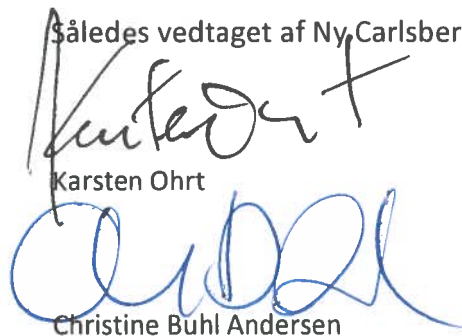 Således vedtaget af Ny Carlsber
Karsten Ohrt
Christine Buhl Andersen